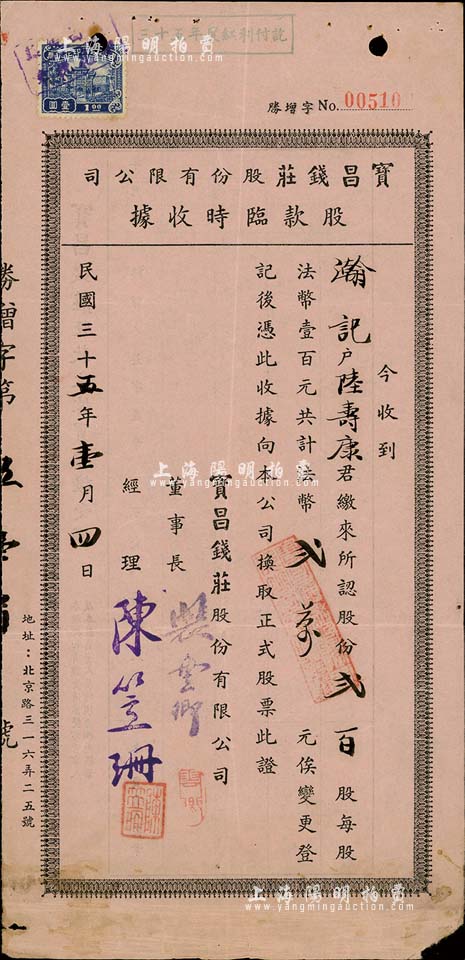 訖付利紅度年五十三
上海陽明拍賣
www.yangmingauction.com
壹圓
1 00
勝增字 No. 00510
司公限有份股莊錢昌寶
據收時臨款股
今收到
瀚記戶陸壽康君繳來所認股份貳百股每股
法幣壹百元共計法幣貳萬元俟變更登
記後憑此收據向本公司換取正式股票此證
寶昌錢莊股份有限公司
董事長 裴雲卿
經理 陳笠珊
民國三十五年壹月四日
勝增字第伍壹號
地址：北京路三一六弄二五號
上海陽明拍賣
www.yangmingauction.com
上海陽明拍賣
www.yangmingauction.com